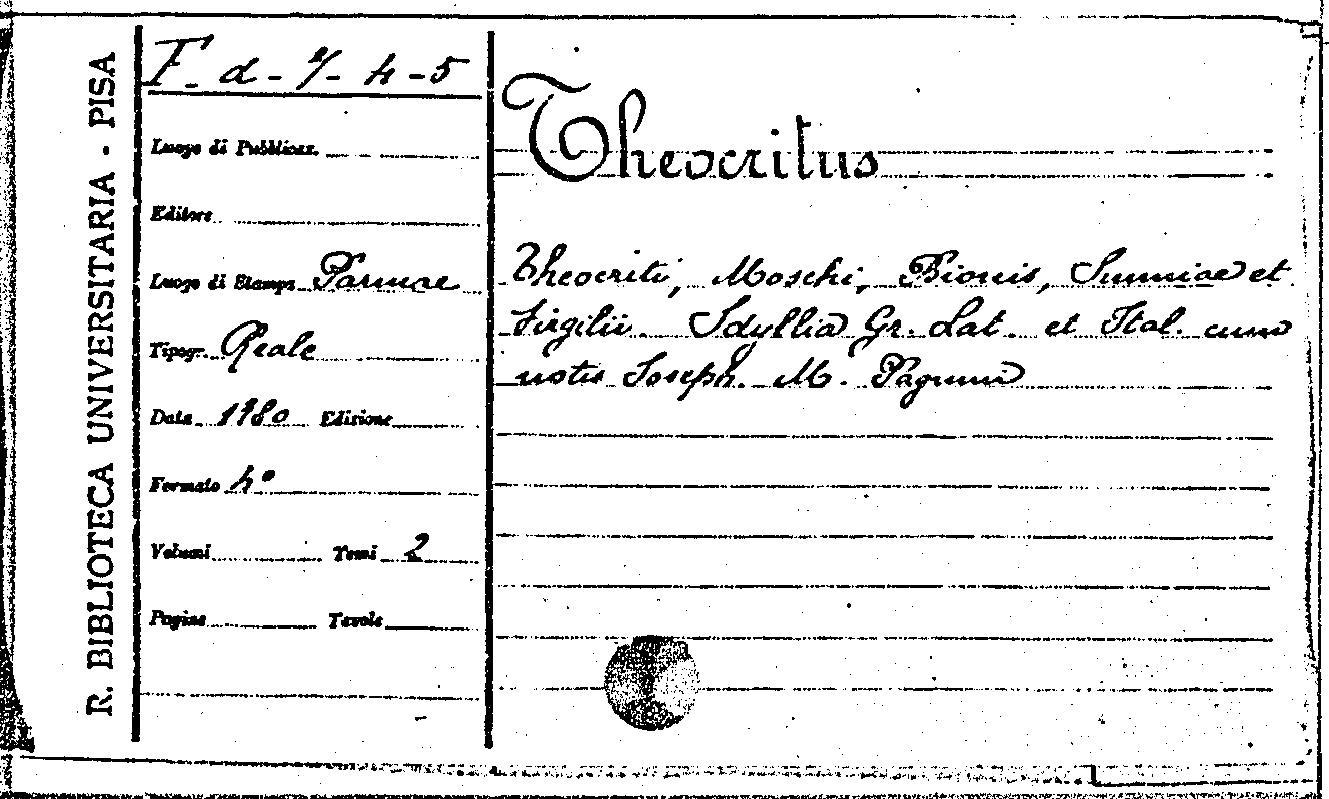 R. BIBLIOTECA UNIVERSITARIA - PISA
F. d - 7 - 4 - 5
Luogo di Pubblicaz.
Editore
Luogo di Stampa Parmae
Tipogr. Reale
Data 1780 Edizione
Formato 4°
Volumi Tomi 2
Pagine Tavole
Theocritus
Theocriti, Moschi, Bionis, Simmiae et
Virgilii Idyllia Gr. Lat. et Ital. cum
notis Joseph. M. Pagnini